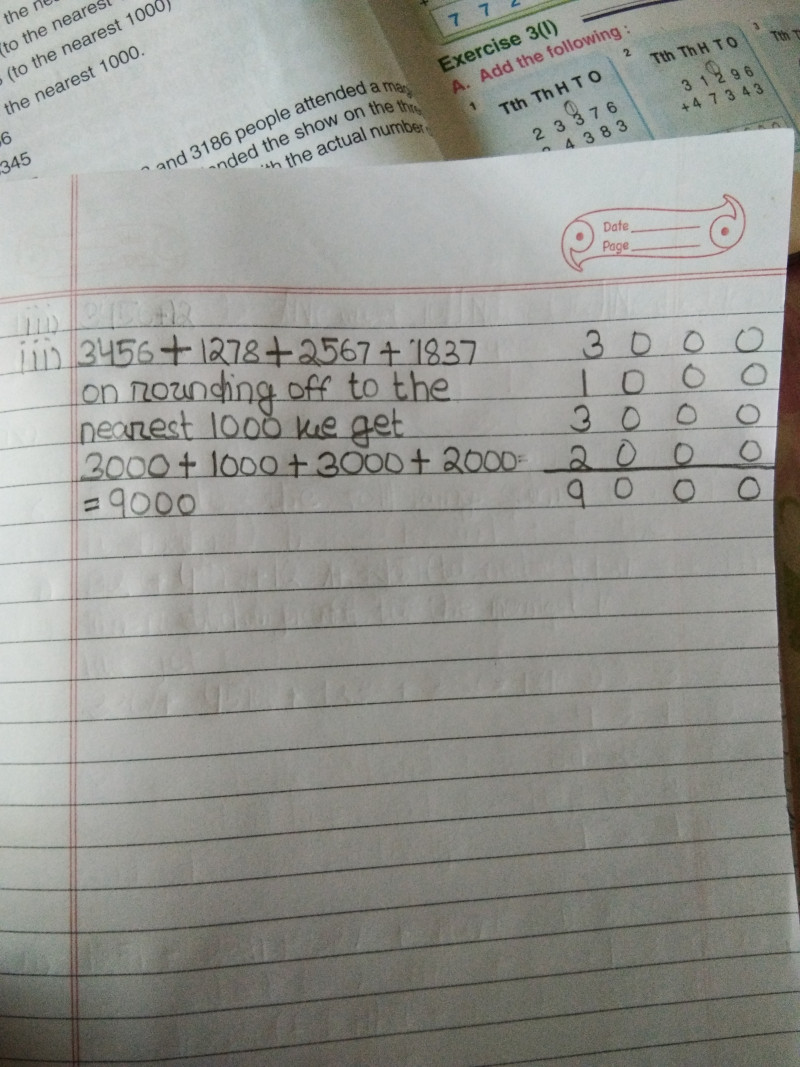 (to the nearest
(to the nearest 1000)
the nearest 1000.
345
and 3186 people attended a
the show on the
the actual number
7 7 2
Exercise 3(I)
A. Add the following :
1
Tth Th H T O
2 3 3 7 6
4 3 8 3
2
Tth Th H T O
3 1 2 9 6
+ 4 7 3 4 3
3
Tth T
Date
Page
iii) 3456+12
iii) 3456 + 1278 + 2567 + 1837
on rounding off to the
nearest 1000 we get
3000 + 1000 + 3000 + 2000=
= 9000
3 0 0 0
1 0 0 0
3 0 0 0
2 0 0 0
9 0 0 0